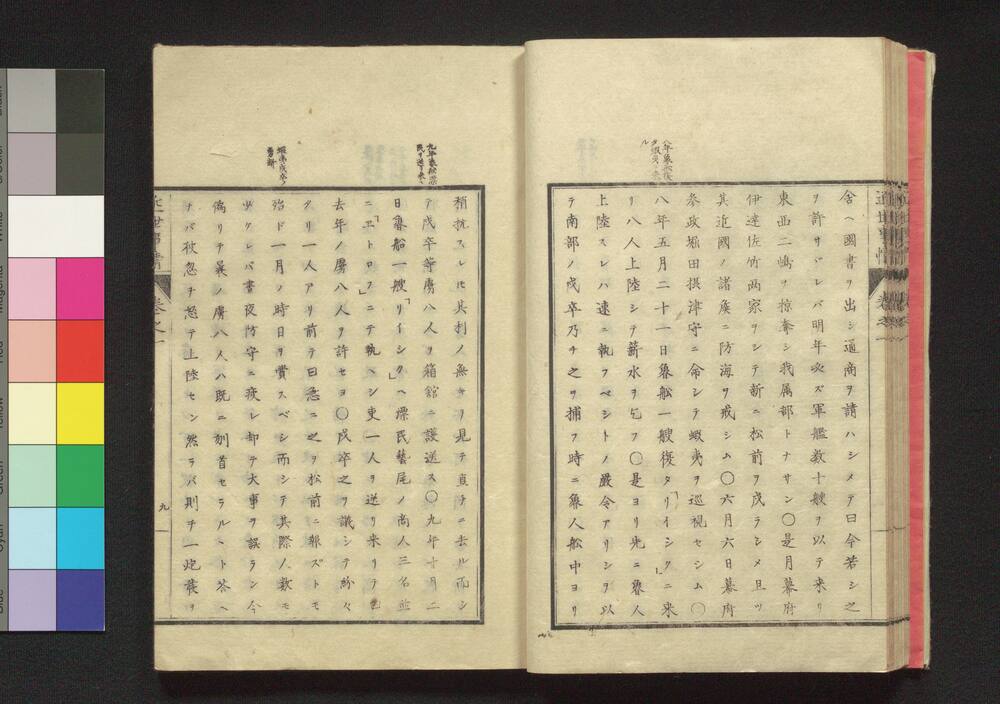 舍ヘ國書ヲ出シ通商ヲ請ハシメテ曰今若シ之
ヲ許サヾレバ明年必ズ軍艦数十艘ヲ以テ来リ
東西二嶋ヲ掠奪シ我属部トナサン〇是月幕府
伊達佐竹両家ヲシテ新ニ松前ヲ戍ラシメ且ツ
其近國ノ諸矦ニ防海ヲ戒シム〇六月六日幕府
参政堀田摂津守ニ命シテ蝦夷ヲ巡視セシム〇
八年五月二十一日魯舩一艘復タ「リイシク」ニ来
リ八人上陸シテ薪水ヲ乞フ〇是ヨリ先ニ魯人
上陸スレハ速ニ執フベシトノ嚴令アリシヲ以
テ南部ノ戍卒乃チ之ヲ捕フ時ニ魯人舩中ヨリ
稍抗スレ𪜈其利ノ無キヲ見テ直チニ去ル而シ
テ戍卒等虜八人ヲ箱舘ニ護送ス〇九年十月二
日魯船一艘「リイシク」ヘ漂民藝尾ノ商人三名並
ニ「エトロフ」ニテ執ヘシ吏一人ヲ送リ来リテ
去年ノ虜八人ヲ許セヨ〇戍卒之ヲ議シテ紛々
タリ一人アリ前テ曰急ニ之ヲ松前ニ報ズトモ
殆ド一月ノ時日ヲ費スベシ而シテ其際ノ敷モ
ケレバ書夜防守ニ疲レ却テ大事ヲ誤ラン今
偽リテ曩ノ虜八人ハ既ニ刎首セラルヽト答ヘ
ナバ彼忽チ怒テ上陸セン然ラバ則チ一炮發ヲ
近世事情
卷之一
九